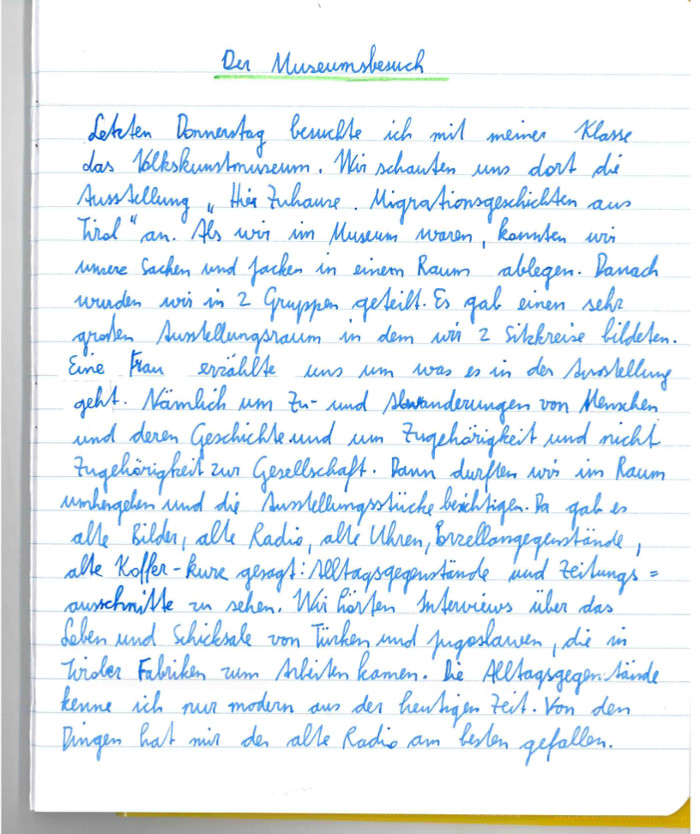 Der Museumsbesuch
Letzten Donnerstag besuchte ich mit meiner Klasse
das Volkskunstmuseum. Wir schauten uns dort die
Ausstellung „Hier Zuhause. Migrationsgeschichten aus
Tirol" an. Als wir im Museum waren, konnten wir
unsere Sachen und Jacken in einem Raum ablegen. Danach
wurden wir in 2 Gruppen geteilt. Es gab einen sehr
großen Ausstellungsraum in dem wir 2 Sitzkreise bildeten.
Eine Frau erzählte uns um was es in der Ausstellung
geht. Nämlich um Zu- und Abwanderungen von Menschen
und deren Geschichte und um Zugehörigkeit und nicht
Zugehörigkeit zur Gesellschaft. Dann durften wir im Raum
umhergehen und die Ausstellungsstücke besichtigen. Da gab es
alte Bilder, alte Radio, alte Uhren, Porzellangegenstände,
alte Koffer - kurz gesagt: Alltagsgegenstände und Zeitungs=
ausschnitte zu sehen. Wir hörten Interviews über das
Leben und Schicksale von Türken und Jugoslawen, die in
Tiroler Fabriken zum Arbeiten kamen. Die Alltagsgegenstände
kenne ich nur modern aus der heutigen Zeit. Von den
Dingen hat mir der alte Radio am besten gefallen.